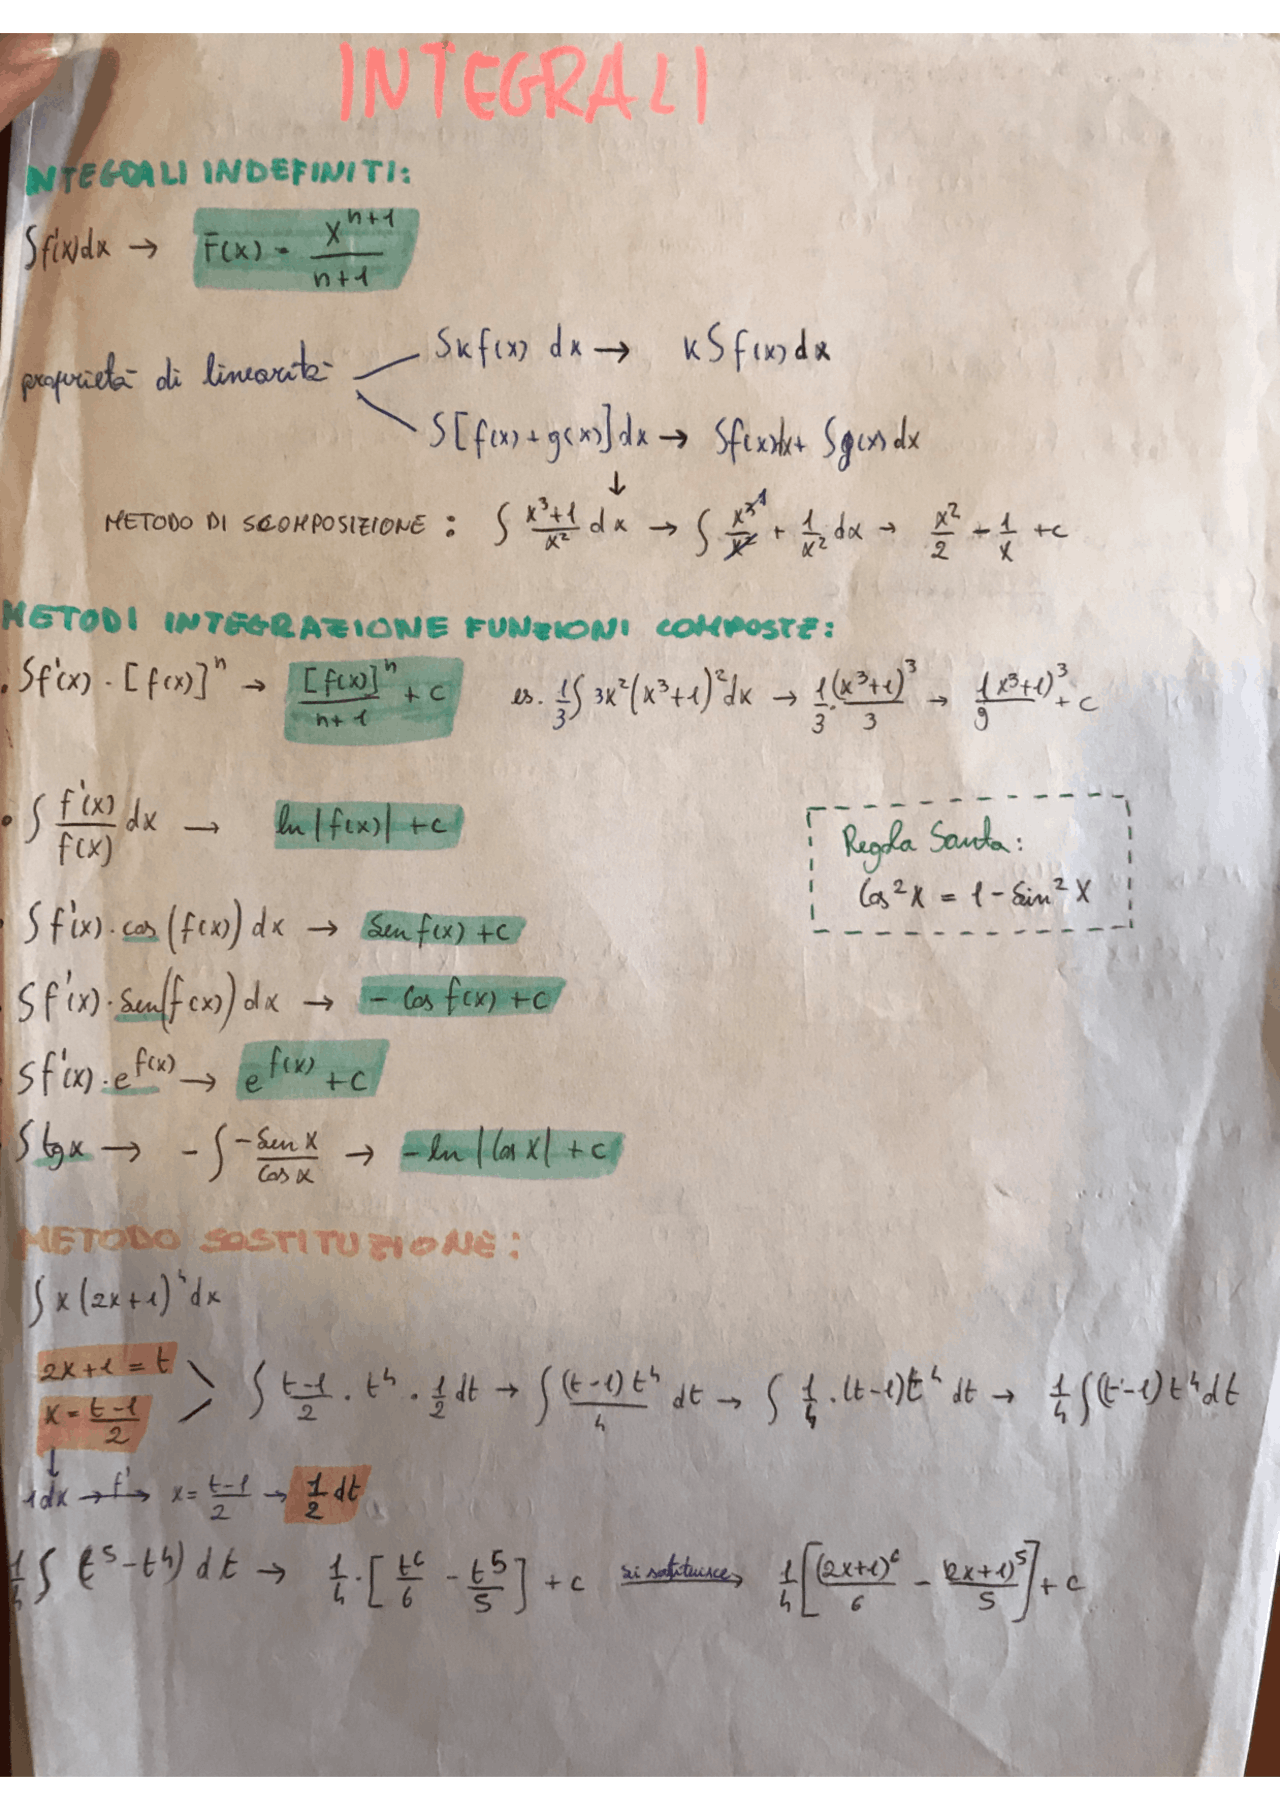 INTEGRALI
NTEGRALI INDEFINITI:
∫f'(x)dx → F(x) = x^(n+1)/(n+1)
proprietà di linearità
∫kf(x) dx → k∫f(x)dx
∫[f(x)+g(x)]dx → ∫f(x)dx+ ∫g(x)dx
↓
METODO DI SCOMPOSIZIONE : ∫ (x³+1)/x² dx → ∫ x³¹/x² + 1/x² dx → x²/2 - 1/x +c
METODI INTEGRAZIONE FUNZIONI COMPOSTE:
• ∫f'(x) · [f(x)]^n → [f(x)]^n/(n+1) + c es. 1/3 ∫ 3x²(x³+1)²dx → 1/3 · (x³+1)³/3 → (1x³+1)³/9 + c
• ∫ f'(x)/f(x) dx → ln|f(x)| +c
Regola Santa:
Cos²x = 1 - Sin²x
• ∫f'(x)·cos(f(x)) dx → Sen f(x) +c
• ∫f'(x)·Sen(f(x)) dx → - Cos f(x) +c
• ∫f'(x)·e^f(x) → e^f(x) +c
• ∫tgx → -∫ -Sen x/Cos x → -ln|Cos x| +c
METODO SOSTITUZIONE:
∫x(2x+1)⁴dx
2x+1 = t
x = (t-1)/2
∫ (t-1)/2 · t⁴ · 1/2 dt → ∫ (t-1)t⁴/4 dt → ∫ 1/4 · (t-1)t⁴ dt → 1/4 ∫(t-1)t⁴dt
↓
1dx →f'→ x = (t-1)/2 → 1/2 dt
1/4 ∫ (t⁵-t⁴) dt → 1/4 · [t⁶/6 - t⁵/5] + c si sostituisce → 1/4 [(2x+1)⁶/6 - (2x+1)⁵/5] + c